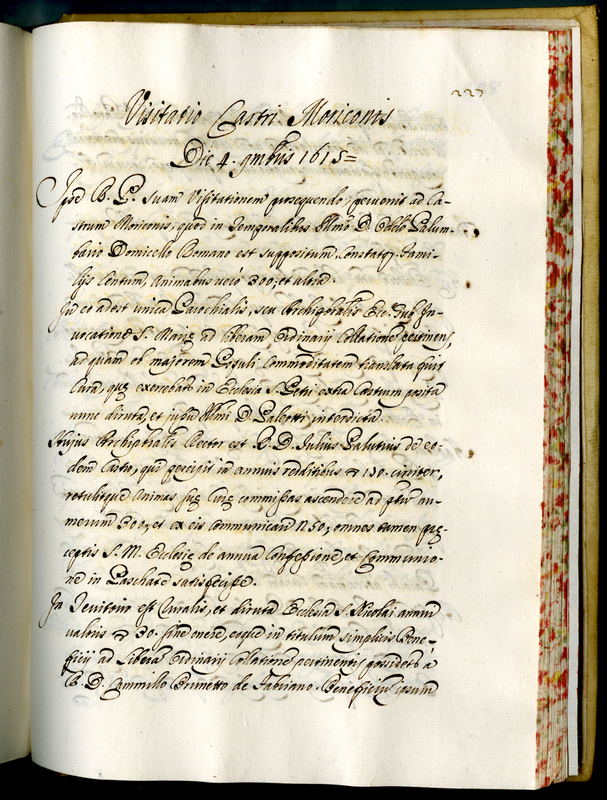 227
Visitatio Castri Moriconis
Die 4. 9mbris 1615=
Ipse R. P. suam Visitationem prosequendo pervenit ad Ca-
strum Moriconis, quod in Temporalibus Illmo D. Palum-
bario Domicello Romano est suppositum, Constatq. Fami-
lijs Centum, Animabus vero 300, et ultra.
In eo adest unica Parochialis, seu Archipbralis Ecc. sub In-
vocatione S. Mariæ ad liberam Ordinarij Collatione pertinen,
ad quam ob majorem Populi Commoditatem translata fuit
Cura, quæ exercebat in Ecclesia S. Petri extra Castrum posita
nunc diruta, et iussu Illmi D. Paleotti interdicta.
Hujus Archipbralis Rector est R. D. Julius Salutius de eo-
dem Castro, qui percipit in annuis redditibus 130. circiter,
retulitque Animas suæ Curæ commissas ascendere ad nu-
merum 300, et ex eis Communicari 250, omnes tamen præ-
ceptis S. M. Ecclesiæ de annua Confessione, et Communio-
ne in Paschate satisfecisse.
In Territorio est Curalis, et diruta Ecclesia S. Nicolai annui
valoris 30. sine onere, eaque in titulum simplicis Bene-
ficij ad Libera Ordinarij Collatione pertinentis possidetr à
R. D. Cammillo Brunetto de Fabriano. Beneficiu ipsum